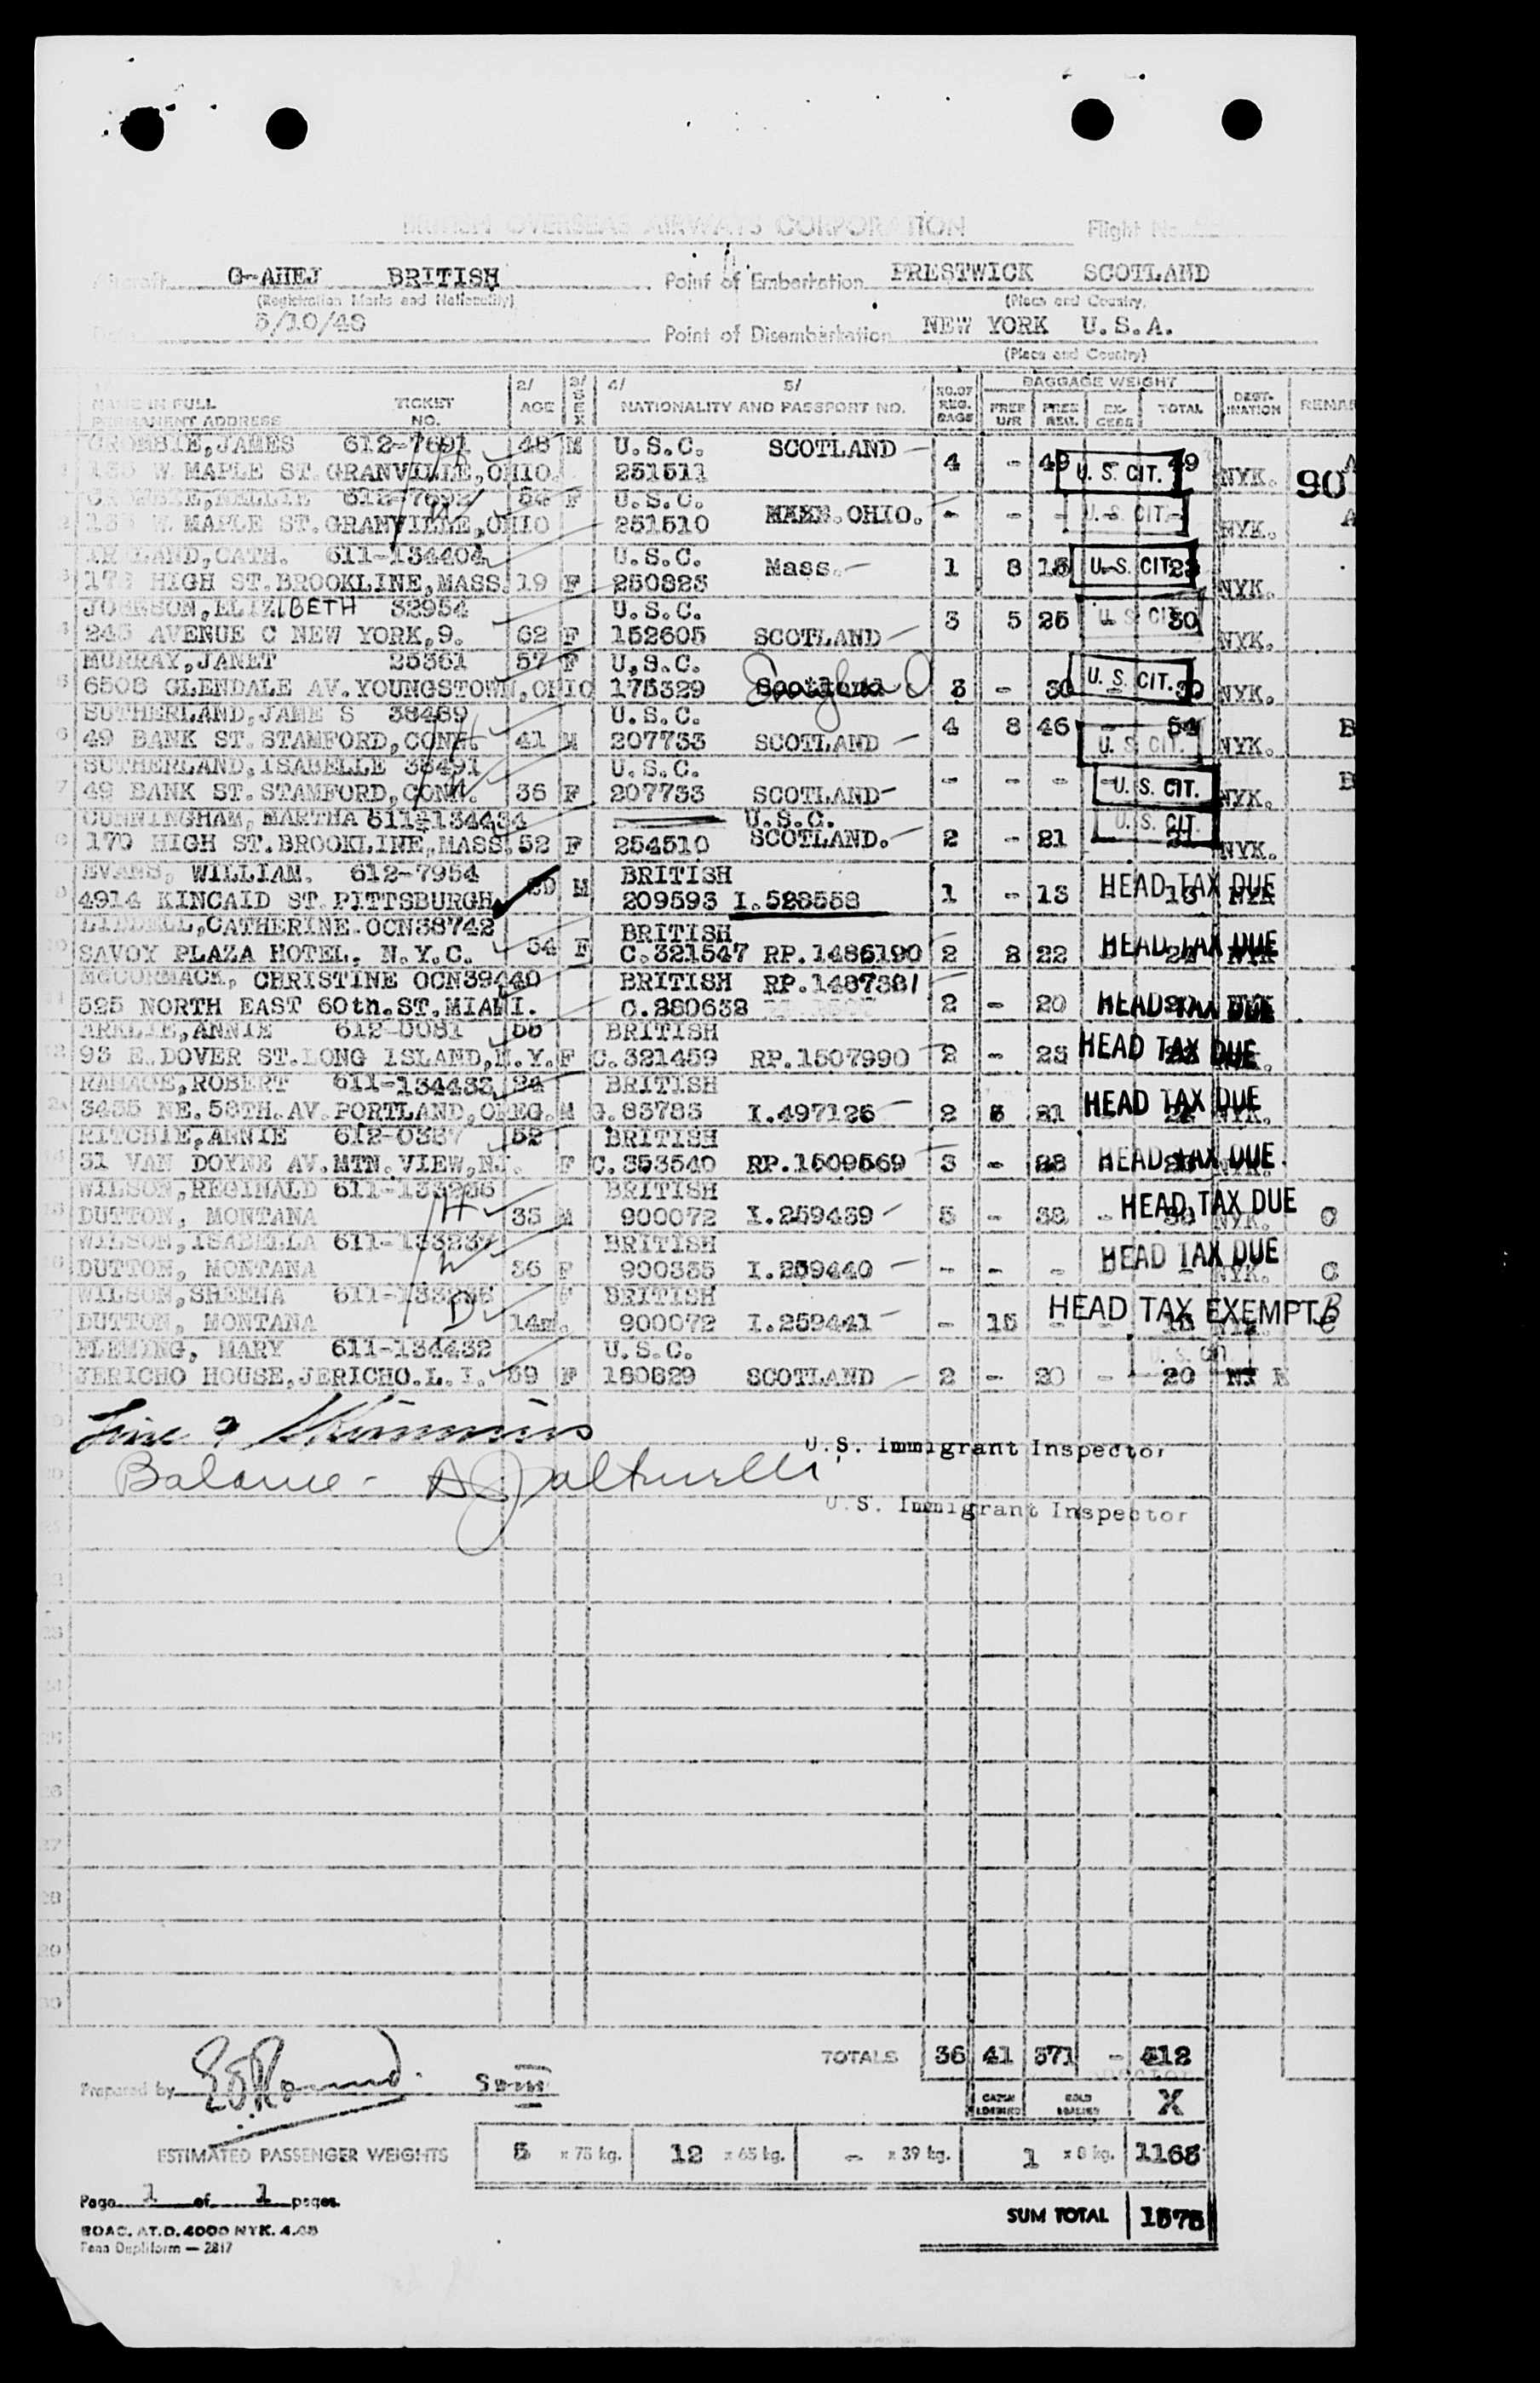 BRITISH OVERSEAS AIRWAYS CORPORATION Flight No.
Aircraft G-AHEJ BRITISH Point of Embarkation PRESTWICK SCOTLAND
(Registration Marks and Nationality) (Place and Country)
5/10/48 Point of Disembarkation NEW YORK U.S.A.
(Place and Country)
NAME IN FULL TICKET 2/ AGE 3/ SEX 4/ 5/ NO. OF REG. BAGS BAGGAGE WEIGHT DEST- REMAR
PERMANENT ADDRESS NO. NATIONALITY AND PASSPORT NO. FREE U/R FREE REG. EX-CESS TOTAL INATION
CROMBIE, JAMES 612-7691 48 M U.S.C. SCOTLAND
135 W. MAPLE ST. GRANVILLE, OHIO. 251511 4 - 49 U.S. CIT. 49 NYK. 90 A
CROMBIE, NELLIE 612-7692 F U.S.C.
135 W. MAPLE ST. GRANVILLE, OHIO 251510 OHIO. - - - U.S. CIT. - NYK. A
IRELAND, CATH. 611-134404 U.S.C. Mass.
HIGH ST. BROOKLINE, MASS. 19 F 250823 1 8 15 U.S. CIT. 23 NYK.
JOHNSON, ELIZIBETH 32954 U.S.C.
245 AVENUE C NEW YORK, 9. 62 F 152605 SCOTLAND 3 5 25 U.S. CIT. 30 NYK.
MURRAY, JANET 25361 57 F U.S.C.
6508 GLENDALE AV. YOUNGSTOWN, OHIO 175329 Scotland England 3 - 30 U.S. CIT. 30 NYK.
SUTHERLAND, JAME S 38489 U.S.C.
49 BANK ST. STAMFORD, CONN. 41 M 207733 SCOTLAND 4 8 46 - 54 U.S. CIT. NYK. B
SUTHERLAND, ISABELLE 38491 U.S.C.
49 BANK ST. STAMFORD, CONN. 36 F 207733 SCOTLAND - - - - U.S. CIT. NYK. B
CUNNINGHAM, MARTHA 611-134434 U.S.C. U.S. CIT.
170 HIGH ST. BROOKLINE, MASS. 52 F 254510 SCOTLAND. 2 - 21 21 NYK.
EVANS, WILLIAM. 612-7954 M BRITISH
4914 KINCAID ST. PITTSBURGH 209593 I.528558 1 - 13 HEAD TAX DUE 13 NYK
LIDDELL, CATHERINE. OCN38742 54 F BRITISH
SAVOY PLAZA HOTEL. N.Y.C. C.321547 RP.1486190 2 8 22 HEAD TAX DUE NYK
MCCORMACK, CHRISTINE OCN39440 BRITISH RP.1487381
525 NORTH EAST 60th. ST. MIAMI. C.280638 2 - 20 HEAD TAX DUE 20 NYK
ARKLIE, ANNIE 612-0081 55 BRITISH
93 E. DOVER ST. LONG ISLAND, N.Y. F C.321459 RP.1507990 2 - 23 HEAD TAX DUE
RAMAGE, ROBERT 611-134433 24 BRITISH
3435 NE. 58TH. AV. PORTLAND, OREG. M G.83783 I.497126 2 5 21 HEAD TAX DUE NYK.
RITCHIE, ANNIE 612-0387 52 BRITISH
31 VAN DOYNE AV. MTN. VIEW, NJ. F C.353540 RP.1509569 3 - 28 HEAD TAX DUE
WILSON, REGINALD 611-133236 H BRITISH
DUTTON, MONTANA 35 M 900072 I.259439 5 - 38 - HEAD TAX DUE 38 NYK. C
WILSON, ISABELLA 611-133237 W BRITISH
DUTTON, MONTANA 36 F 900335 I.259440 - - - HEAD TAX DUE - NYK. C
WILSON, SHEENA 611-133238 D F BRITISH
DUTTON, MONTANA 14m. 900072 I.259441 - 15 - HEAD TAX EXEMPT 15 C
FLEMING, MARY 611-134432 U.S.C. U.S. CIT.
JERICHO HOUSE, JERICHO. L.I. 59 F 180829 SCOTLAND 2 - 20 - 20 NY K
U.S. Immigrant Inspector
Balance -
U.S. Immigrant Inspector
TOTALS 36 41 371 - 412
Prepared by
CABIN LOADED HOLD LOADED X
ESTIMATED PASSENGER WEIGHTS 5 x 75 kg. 12 x 65 kg. - x 39 kg. 1 x 8 kg. 1163
Page 1 of 1 pages.
SUM TOTAL 1575
BOAC. AT.D. 4000 NYK. 4.48
Penn Dupliform — 2817